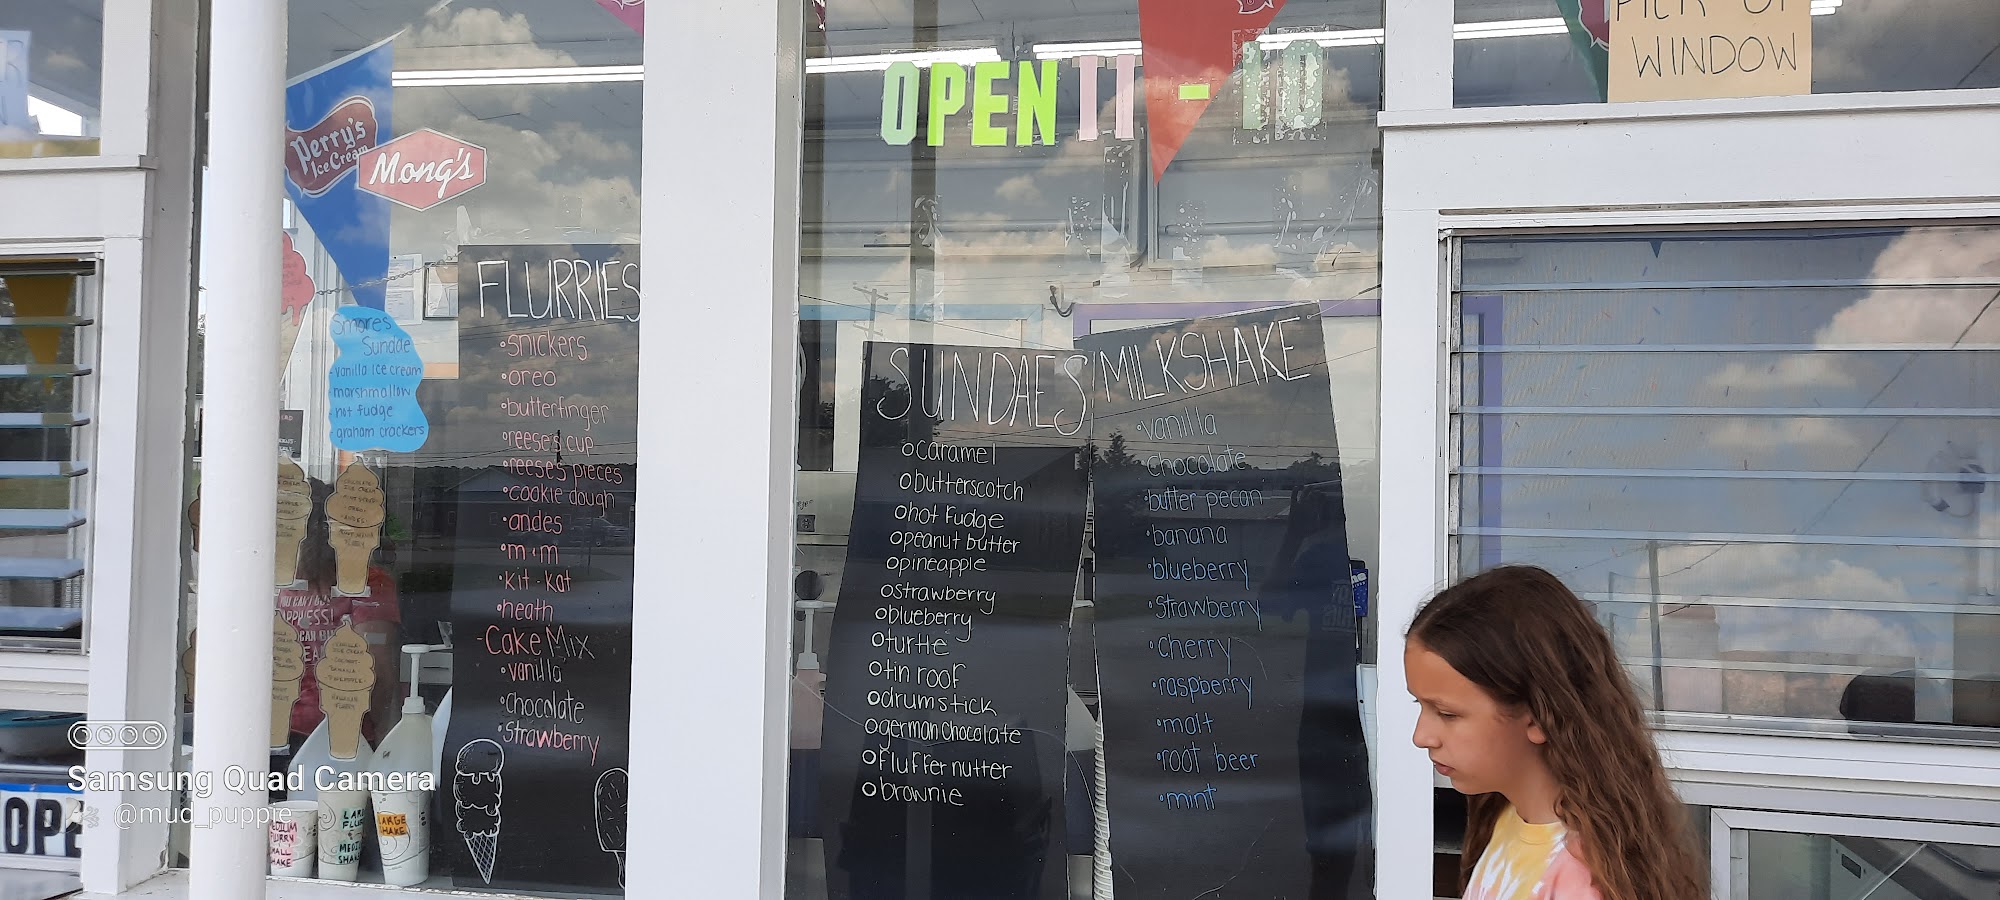 PICK UP
WINDOW
OPEN 11 - 10
Perry's
Ice Cream
Mong's
Smores
Sundae
- vanilla ice cream
- marshmallow
- hot fudge
- graham crackers
FLURRIES
• snickers
• oreo
• butterfinger
• reese's cup
• reese's pieces
• cookie dough
• andes
• m • m
• kit - kat
• heath
- Cake Mix
• vanilla
• chocolate
• strawberry
SUNDAES
o caramel
o butterscotch
o hot fudge
o peanut butter
o pineapple
o strawberry
o blueberry
o turtle
o tin roof
o drumstick
o german chocolate
o fluffernutter
o brownie
MILKSHAKE
• vanilla
chocolate
• butter pecan
• banana
• blueberry
• strawberry
• cherry
• raspberry
• malt
• root beer
• mint
MEDIUM
FLURRY
SMALL
SHAKE
LARGE
FLURRY
MEDIUM
SHAKE
LARGE
SHAKE
OPE
Samsung Quad Camera
@mud_puppie